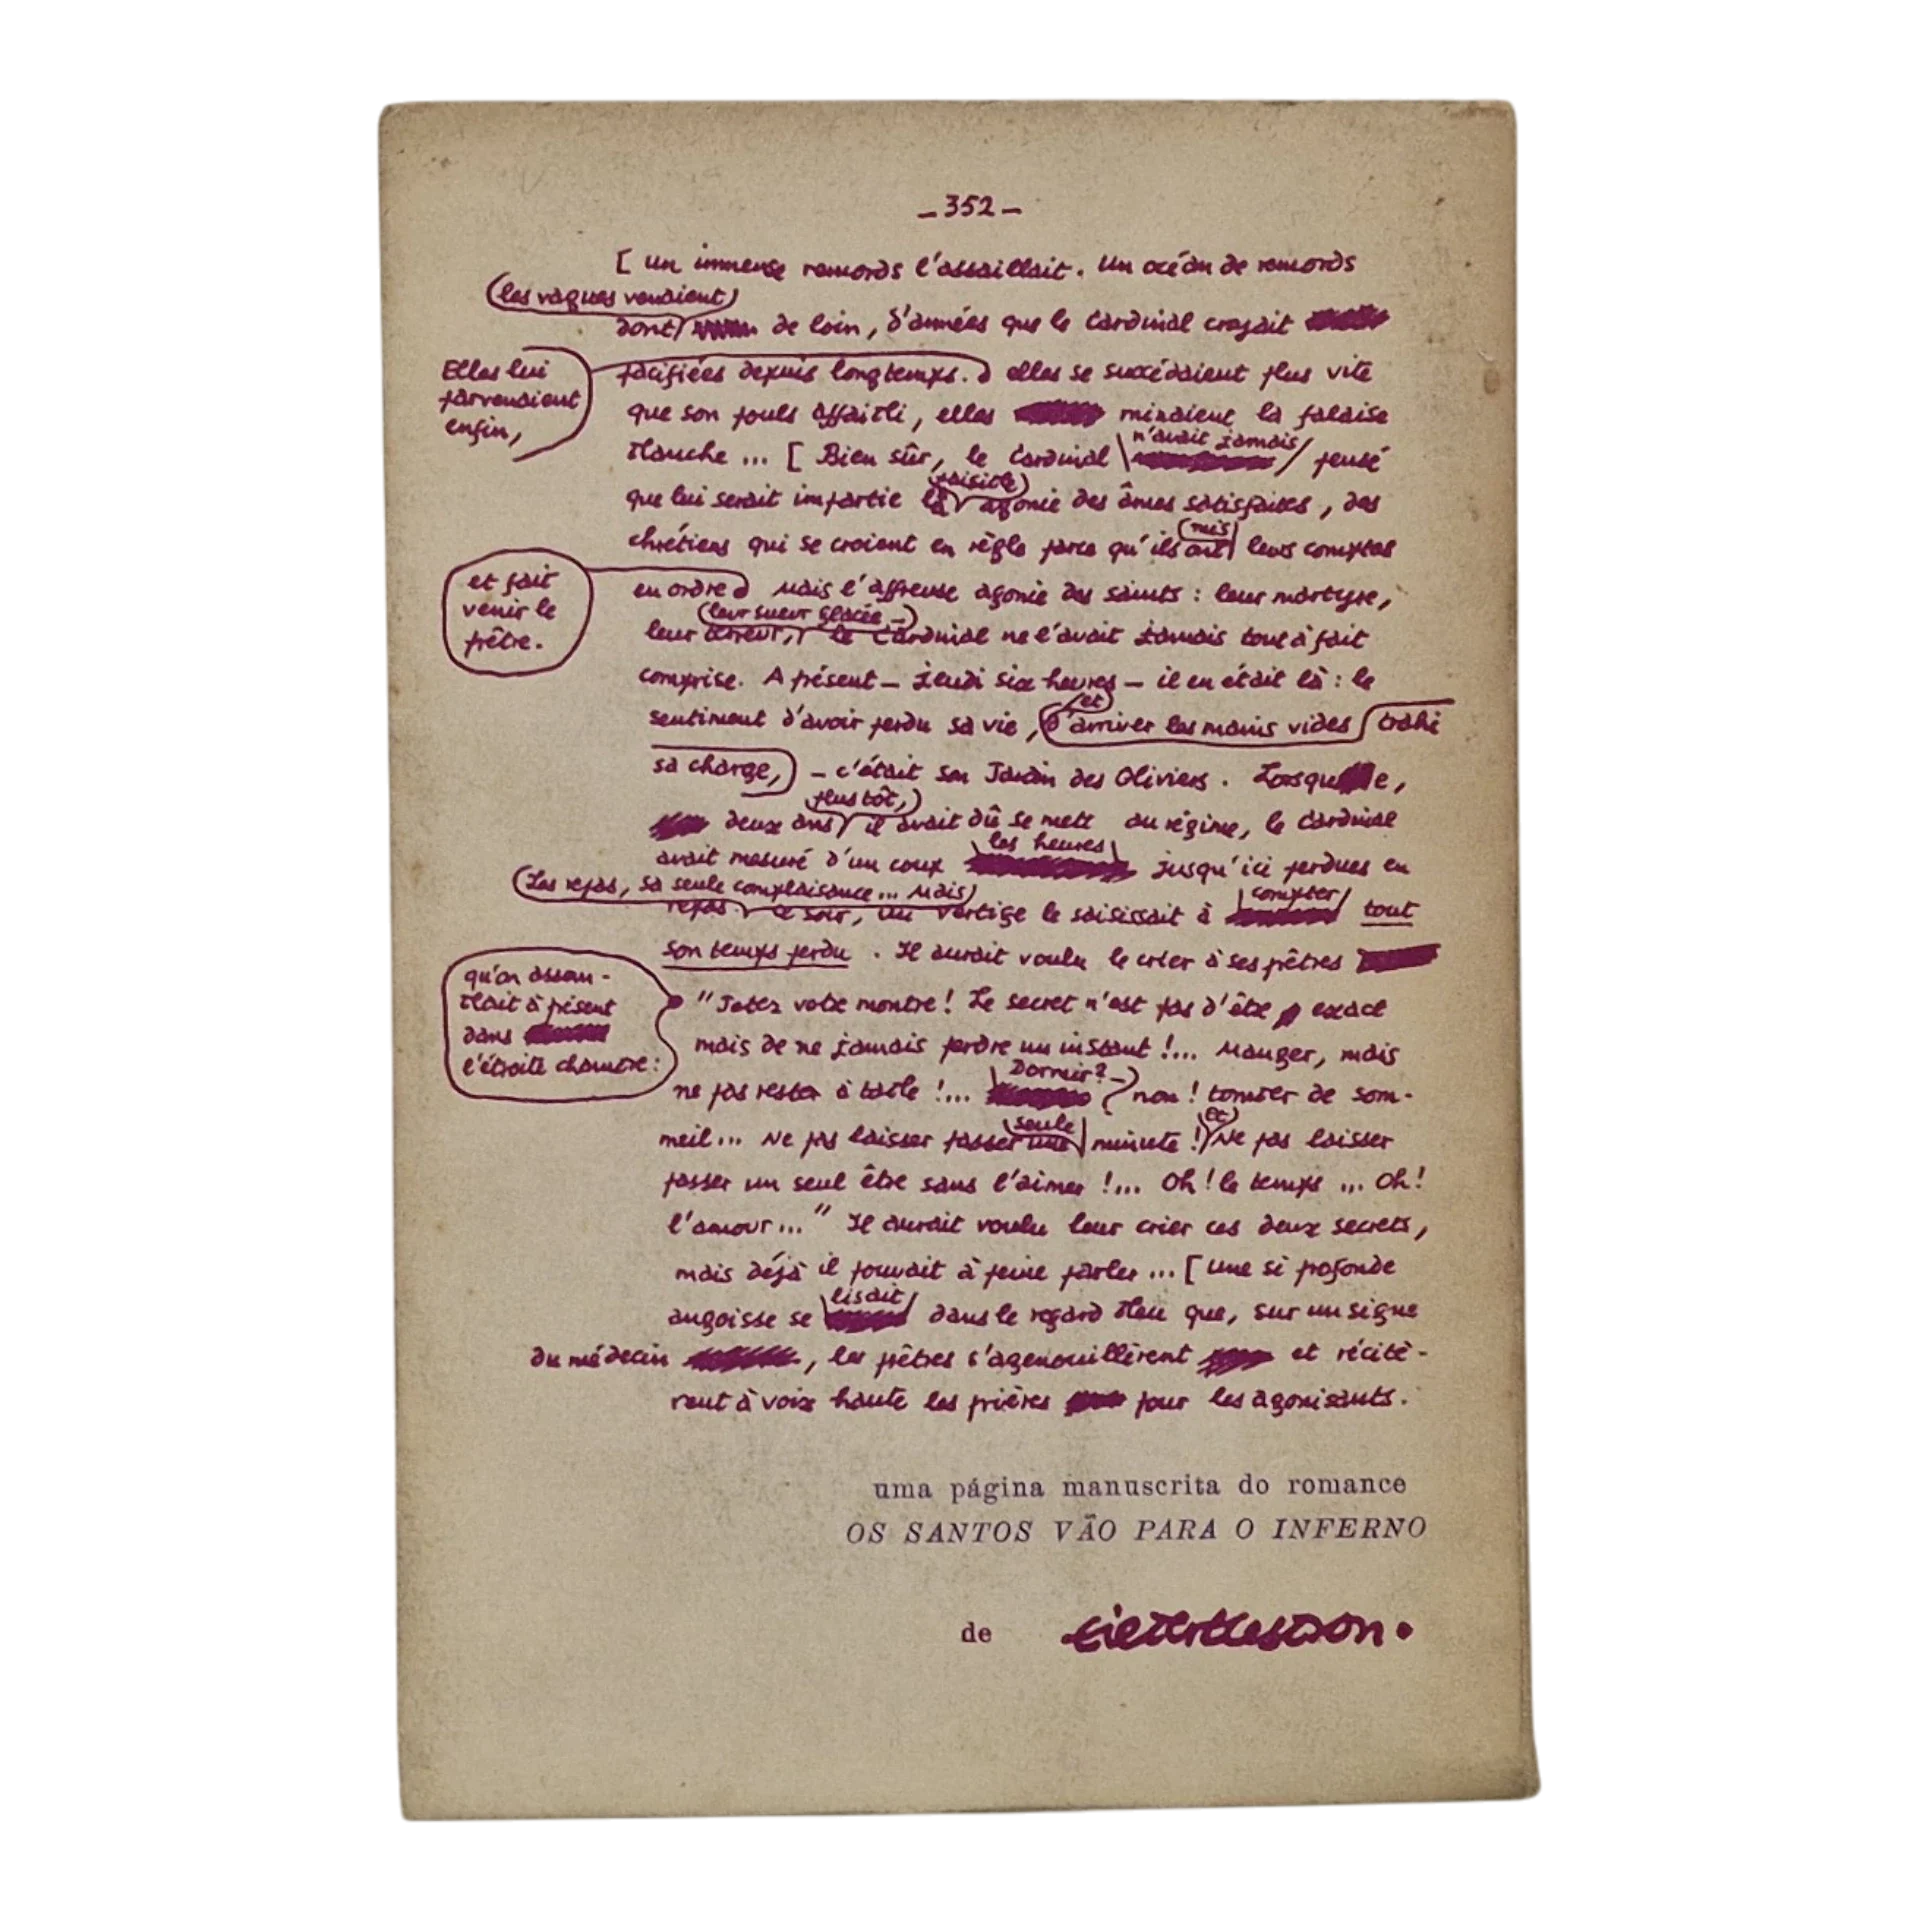 — 352 —
[ un immense remords l'assaillait. Un océan de remords
(les vagues venaient)
dont de loin, d'années que le Cardinal croyait
Elles lui
parvenaient
enfin,
pacifiées depuis longtemps. elles se succédaient plus vite
que son pouls affaibli, elles minaient la falaise
n'avait jamais
blanche ... [ Bien sûr, le Cardinal pensé
paisible
que lui serait impartie la agonie des âmes satisfaites, des
mis
chrétiens qui se croient en règle parce qu'ils ont leurs comptes
et fait
venir le
prêtre.
en ordre Mais l'affreuse agonie des saints : leur martyre,
leur sueur glacée —
leur terreur, le Cardinal ne l'avait jamais tout à fait
comprise. A présent — jeudi six heures — il en était là : le
et
sentiment d'avoir perdu sa vie, d'arriver les mains vides trahi
sa charge, — c'était son Jardin des Oliviers. Lorsque,
plus tôt,
deux ans il avait dû se mett au régime, le Cardinal
les heures
avait mesuré d'un coup jusqu'ici perdues en
(Les repas, sa seule complaisance ... Mais)
compter
repas. Ce soir, un vertige le saisissait à tout
son temps perdu. Il aurait voulu le crier à ses prêtres
qu'on assem-
blait à présent
dans
l'étroite chambre :
"Jetez votre montre ! Le secret n'est pas d'être exact
mais de ne jamais perdre un instant !... Manger, mais
Dormir ? —
ne pas rester à table !... non ! tomber de som-
seule
et
meil ... Ne pas laisser passer une minute ! Ne pas laisser
passer un seul être sans l'aimer !... Oh ! le temps ... Oh !
l'amour ..." Il aurait voulu leur crier ces deux secrets,
mais déjà il pouvait à peine parler ... [ Une si profonde
lisait
angoisse se dans le regard bleu que, sur un signe
du médecin, les prêtres s'agenouillèrent et récitè-
rent à voix haute les prières pour les agonisants.
uma página manuscrita do romance
OS SANTOS VÃO PARA O INFERNO
de